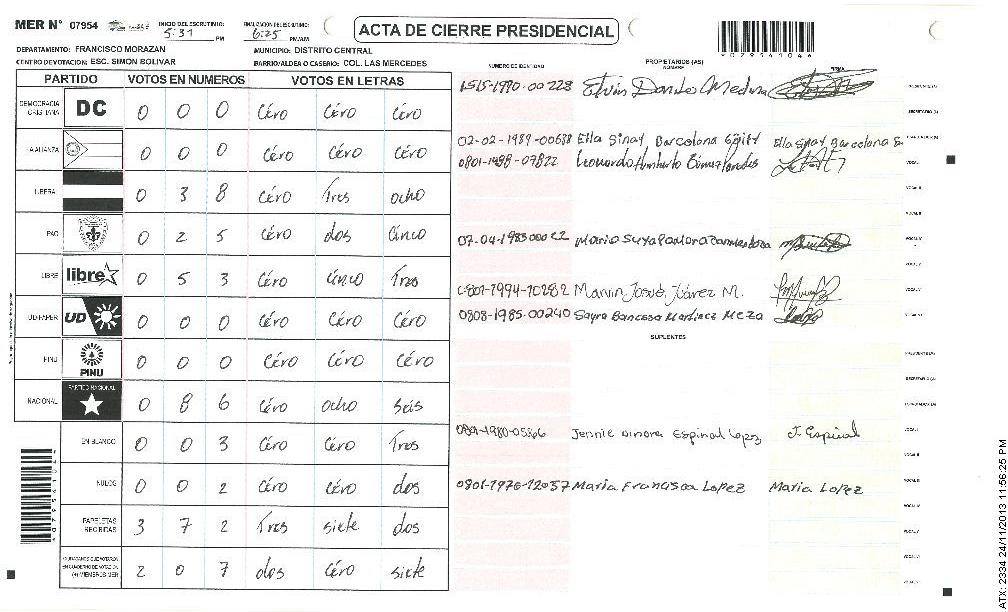 MER N° 07954 INICIO DEL ESCRUTINIO: 5:31 PM FINALIZACION DEL ESCRUTINIO: 6:25 PM/AM
ACTA DE CIERRE PRESIDENCIAL
DEPARTAMENTO: FRANCISCO MORAZAN MUNICIPIO: DISTRITO CENTRAL
CENTRO DE VOTACION: ESC. SIMON BOLIVAR BARRIO/ALDEA O CASERIO: COL. LAS MERCEDES
PARTIDO VOTOS EN NUMEROS VOTOS EN LETRAS
DEMOCRACIA CRISTIANA DC 0 0 0 Céro Céro Céro
LA ALIANZA 0 0 0 Céro Céro Céro
LIBERA 0 3 8 Céro Tres ocho
PAC 0 2 5 Céro dos Cinco
LIBRE libre 0 5 3 Céro Cinco Tres
UD-FAPER UD 0 0 0 Céro Céro Céro
PINU PINU 0 0 0 Céro Céro Céro
NACIONAL PARTIDO NACIONAL 0 8 6 Céro ocho seis
EN BLANCO 0 0 3 Céro Céro Tres
NULOS 0 0 2 Céro Céro dos
PAPELETAS RECIBIDAS 3 7 2 Tres siete dos
CIUDADANOS QUE VOTARON EN CUADERNO DE VOTACION (+) MIEMBROS MER 2 0 7 dos Céro siete
NUMERO DE IDENTIDAD PROPIETARIOS (AS) NOMBRE FIRMA
1515-1990-00228 Elvin Danilo Medina
02-02-1989-00688 Ella Sinay Barcelona Ella Sinay Barcelona
0801-1988-07822 Leonardo Humberto
07-04-1983 00022 Mario
0801-1994-10282 Marvin Josué Juárez M.
0808-1985-00240 Sayra Martinez Meza
SUPLENTES
0801-1980-05366 Jennie Dinora Espinal Lopez J. Espinal
0801-1976-12037 Maria Francisca Lopez Maria Lopez
ATX: 2334 24/11/2013 11:56:25 PM